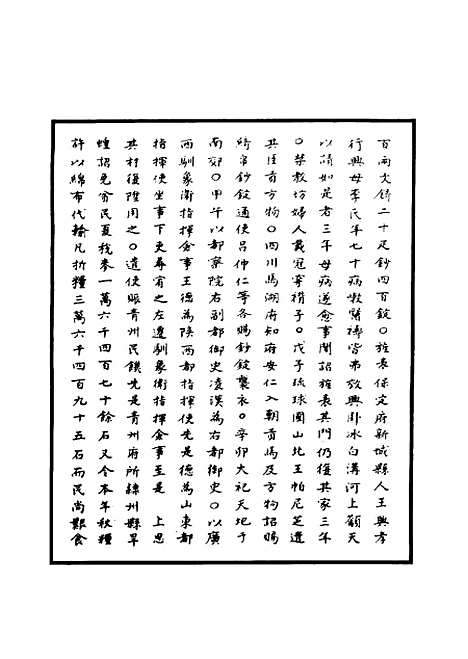 百兩文錦二十疋鈔四百錠○旌表保定府新城縣人王興孝
行興母李氏年七十病嗽醫禱皆弗效興卧冰白溝河上籲天
以請如是者三年母病遂愈事聞詔旌表其門仍復其家三年
○禁教坊婦人戴冠穿褙子○戊子琉球國山北王帕尼芝遣
其臣貢方物○四川馬湖府知府安仁入朝貢馬及方物詔賜
綺帛鈔錠通使呂仲仁等各賜鈔錠襲衣○辛卯大祀天地于
南郊○甲午以都察院右副都御史凌漢為右都御史○以廣
西馴象衛指揮僉事王德為陝西都指揮使先是德為山東都
指揮使坐事下吏尋宥之左遷馴象衛指揮僉事至是 上思
其材復陞用之○遣使賑青州民饑先是青州府所隸州縣旱
蝗詔免貧民夏稅麥一萬六千四百七十餘石又令本年秋糧
許以綿布代輸凡折糧三萬六千四百九十五石而民尚艱食